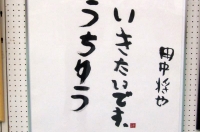 いきたいです、
うちゅう
田中将也